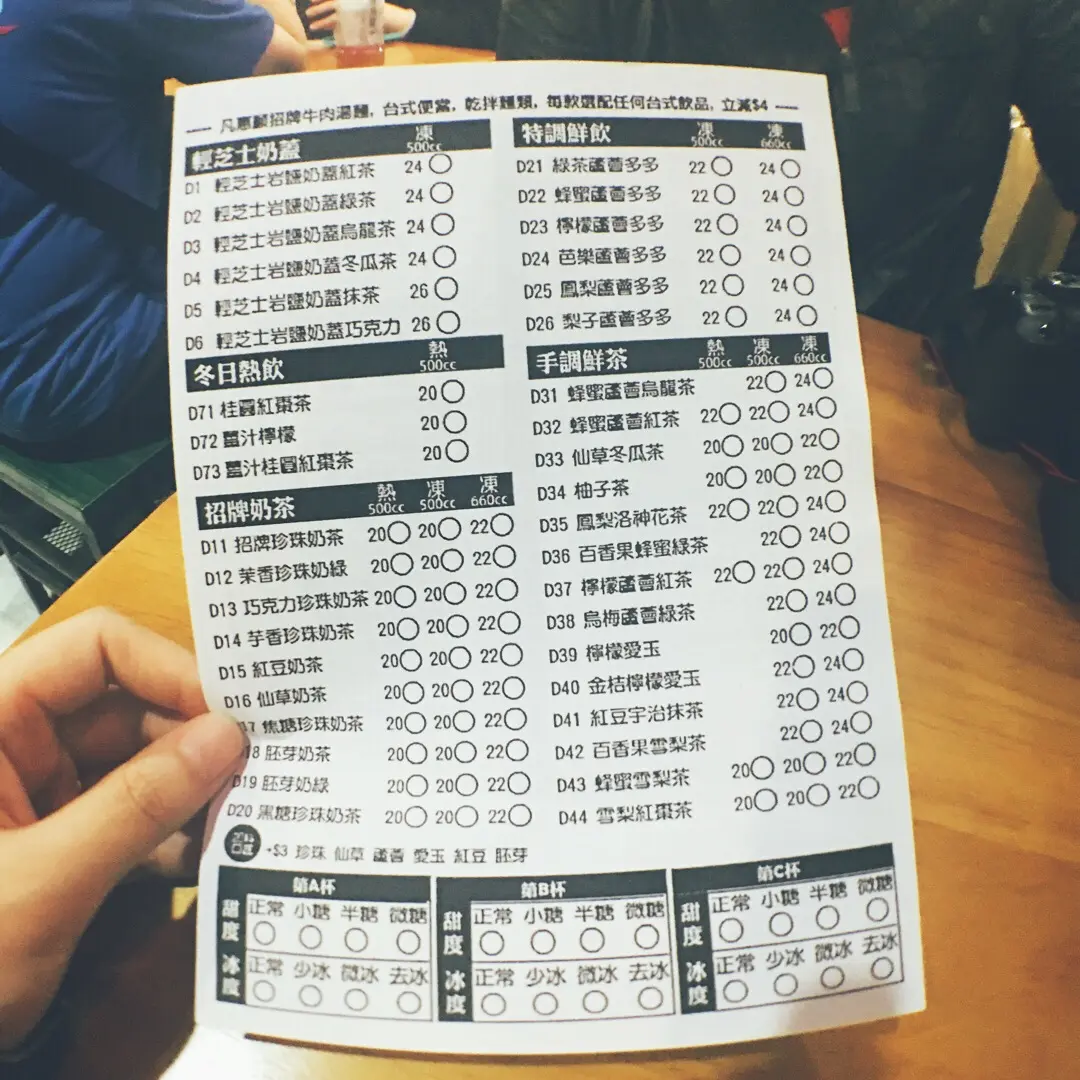 凡惠顧招牌牛肉湯麵, 台式便當, 乾拌麵類, 每款選配任何台式飲品, 立減$4
輕芝士奶蓋 凍 500cc
D1 輕芝士岩鹽奶蓋紅茶 24
D2 輕芝士岩鹽奶蓋綠茶 24
D3 輕芝士岩鹽奶蓋烏龍茶 24
D4 輕芝士岩鹽奶蓋冬瓜茶 24
D5 輕芝士岩鹽奶蓋抹茶 26
D6 輕芝士岩鹽奶蓋巧克力 26
冬日熱飲 熱 500cc
D71 桂圓紅棗茶 20
D72 薑汁檸檬 20
D73 薑汁桂圓紅棗茶 20
招牌奶茶 熱 500cc 凍 500cc 凍 660cc
D11 招牌珍珠奶茶 20 20 22
D12 茉香珍珠奶綠 20 20 22
D13 巧克力珍珠奶茶 20 20 22
D14 芋香珍珠奶茶 20 20 22
D15 紅豆奶茶 20 20 22
D16 仙草奶茶 20 20 22
7 焦糖珍珠奶茶 20 20 22
18 胚芽奶茶 20 20 22
D19 胚芽奶綠 20 20 22
D20 黑糖珍珠奶茶 20 20 22
+$3 珍珠 仙草 蘆薈 愛玉 紅豆 胚芽
特調鮮飲 凍 500cc 凍 660cc
D21 綠茶蘆薈多多 22 24
D22 蜂蜜蘆薈多多 22 24
D23 檸檬蘆薈多多 22 24
D24 芭樂蘆薈多多 22 24
D25 鳳梨蘆薈多多 22 24
D26 梨子蘆薈多多 22 24
手調鮮茶 熱 500cc 凍 500cc 凍 660cc
D31 蜂蜜蘆薈烏龍茶 22 24
D32 蜂蜜蘆薈紅茶 22 22 24
D33 仙草冬瓜茶 20 20 22
D34 柚子茶 20 20 22
D35 鳳梨洛神花茶 22 22 24
D36 百香果蜂蜜綠茶 22 24
D37 檸檬蘆薈紅茶 22 22 24
D38 烏梅蘆薈綠茶 22 24
D39 檸檬愛玉 20 22
D40 金桔檸檬愛玉 22 24
D41 紅豆宇治抹茶 22 24
D42 百香果雪梨茶 22 24
D43 蜂蜜雪梨茶 20 20 22
D44 雪梨紅棗茶 20 20 22
第A杯
甜度 正常 小糖 半糖 微糖
冰度 正常 少冰 微冰 去冰
第B杯
甜度 正常 小糖 半糖 微糖
冰度 正常 少冰 微冰 去冰
第C杯
甜度 正常 小糖 半糖 微糖
冰度 正常 少冰 微冰 去冰